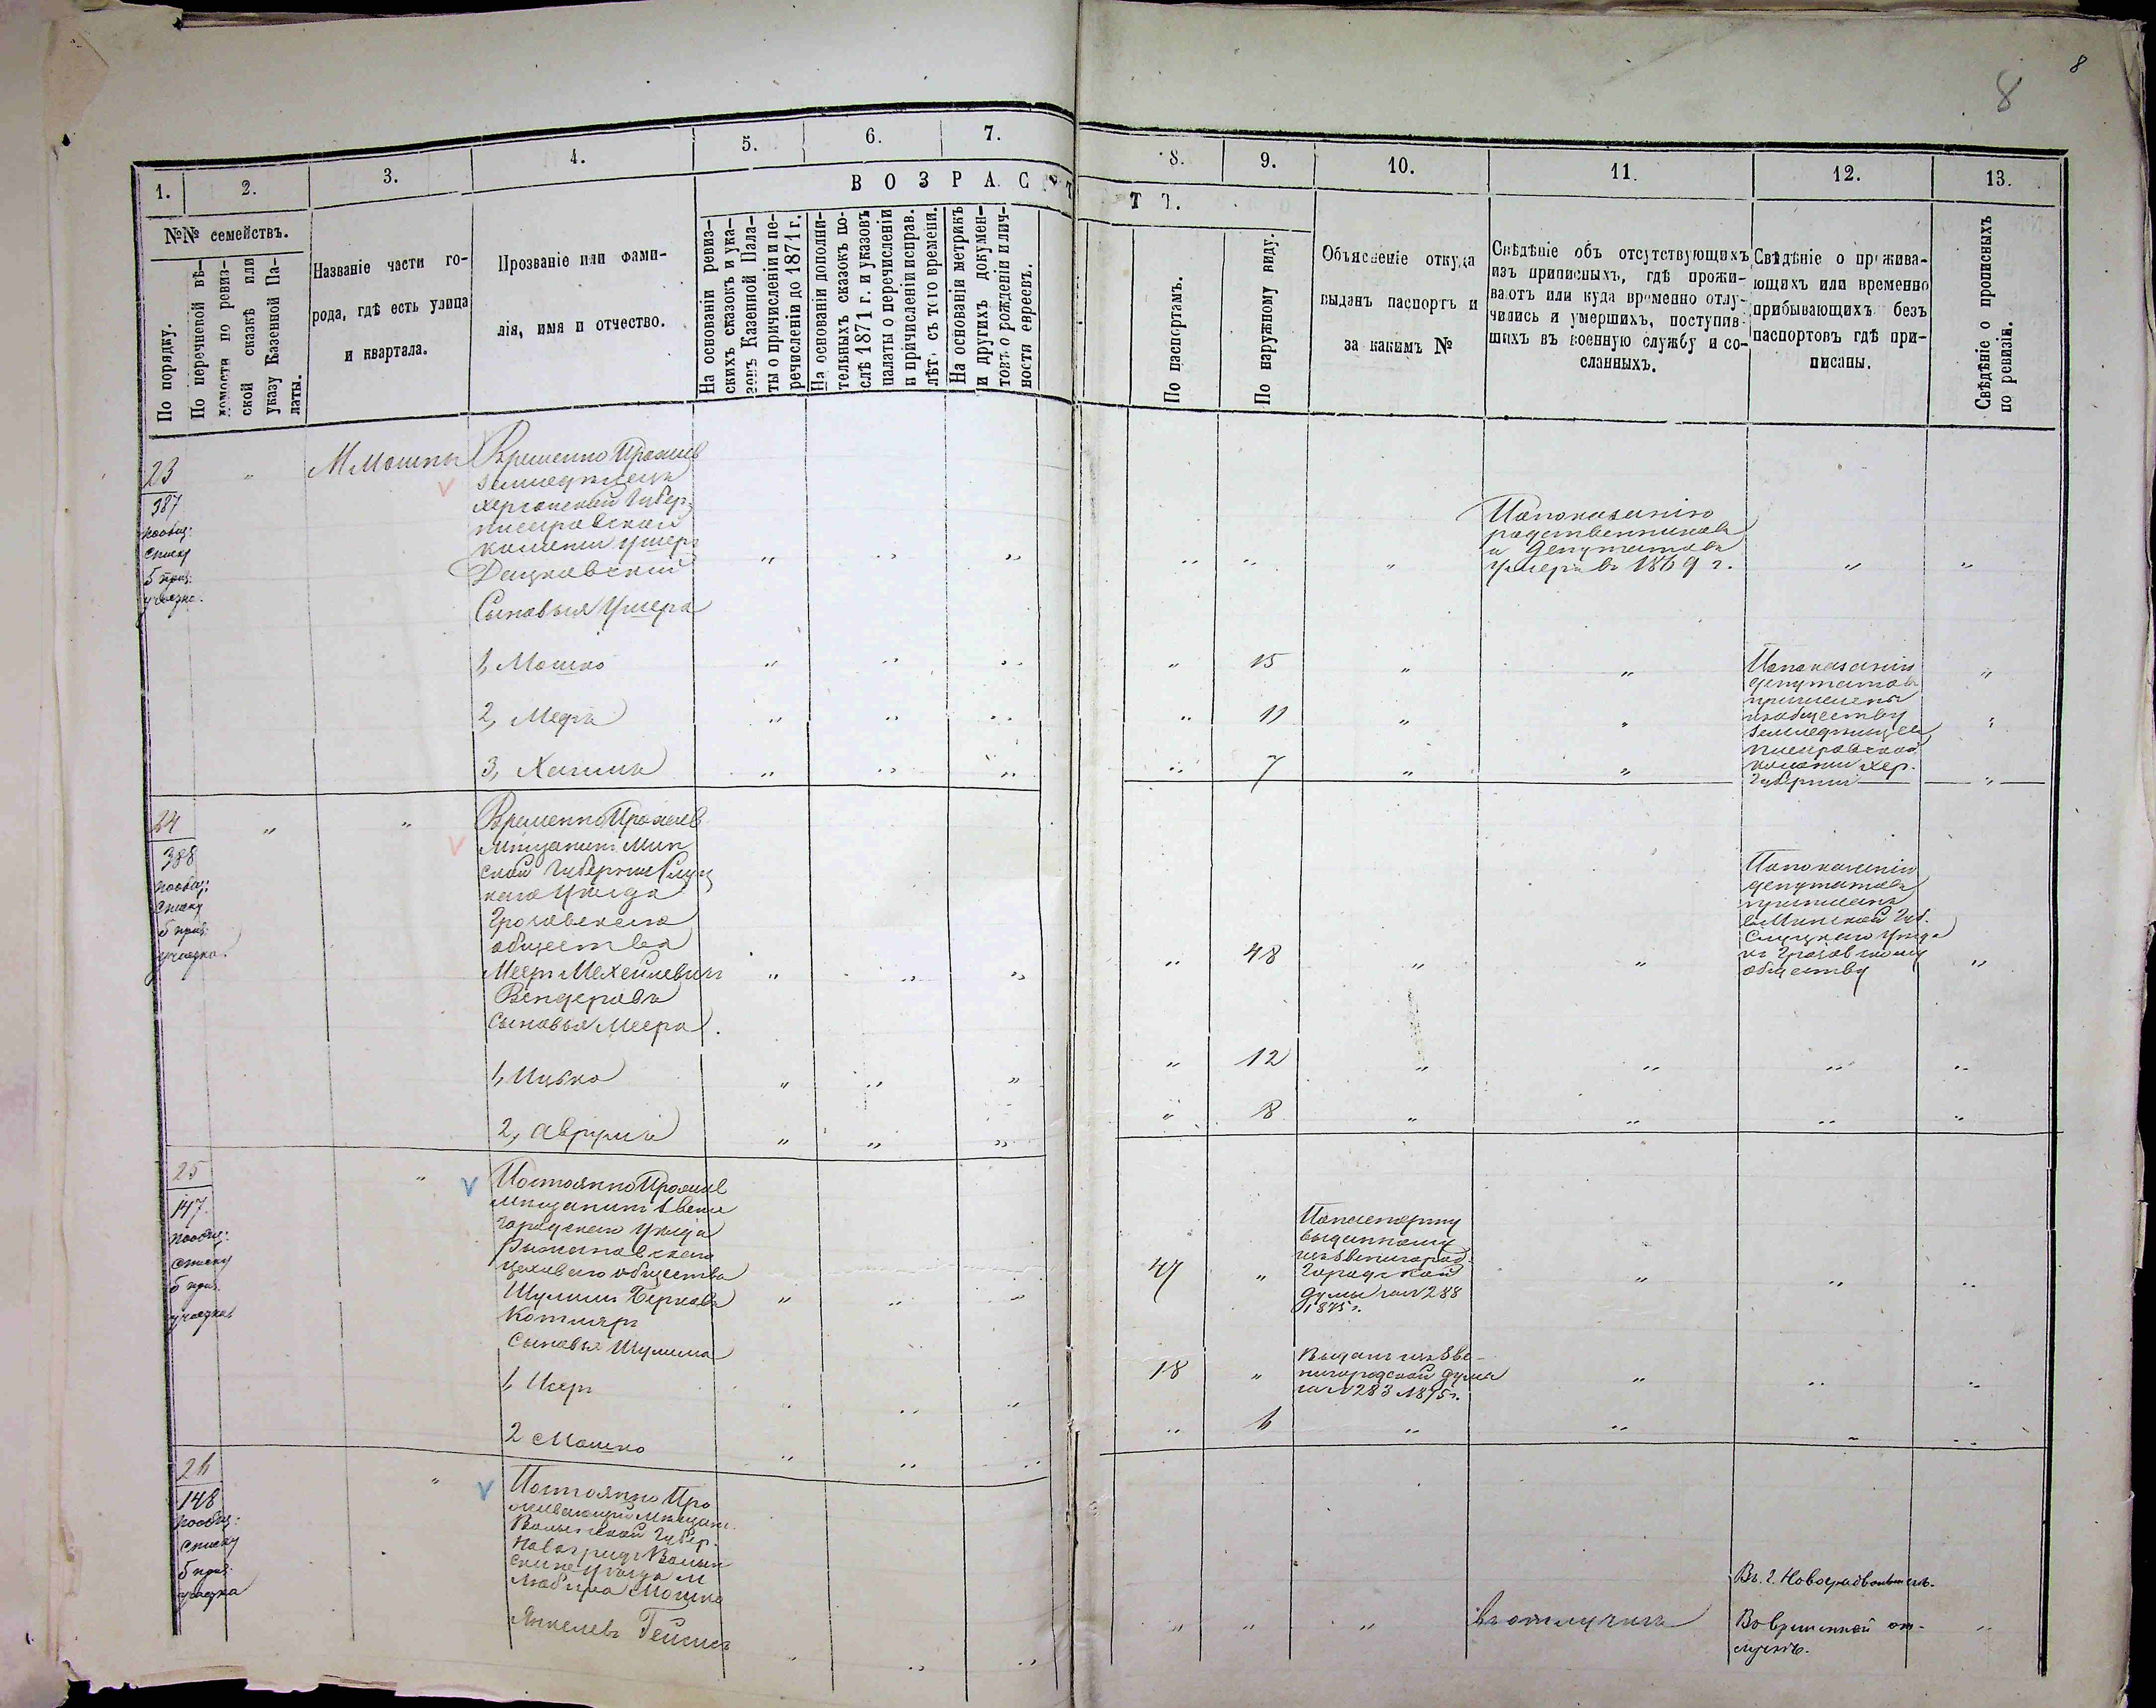 8
8
1.
2.
3.
4.
5.
6.
7.
8.
9.
10.
11.
12.
13.
№№ семействъ.
По порядку.
По перечневой вѣ-
домости по ревиз-
ской скакѣ или
указу Казенной Па-
латы.
Названіе части го-
рода, гдѣ есть улица
и квартала.
Прозваніе или фами-
лія, имя и отчество.
В О З Р А С Т
Т Ъ.
На основаніи ревиз-
скихъ сказокъ и ука-
зовъ Казенной Пала-
ты о причисленіи и пе-
речисленіи до 1871 г.
На основаніи дополни-
тельныхъ сказокъ по-
слѣ 1871 г. и указовъ
палаты о перечисленіи
и причисленіи исправ.
лѣтъ съ того времени.
На основаніи метрикъ
и другихъ докумен-
товъ о рожденіи и лич-
ности евреевъ.
По паспортамъ.
По наружному виду.
Объясненіе откуда
выданъ паспортъ и
за какимъ №
Свѣдѣніе объ отсутствующихъ
изъ приписныхъ, гдѣ прожи-
ваютъ или куда временно отлу-
чились и умершихъ, поступив-
шихъ въ военную службу и со-
сланныхъ.
Свѣдѣніе о прожива-
ющихъ или временно
прибывающихъ безъ
паспортовъ гдѣ при-
писаны.
Свѣдѣніе о прописныхъ
по ревизіи.
23
387
пообщ:
списку
5 приз:
участка.
" М Мошны
Временно Прожив
земледѣлецъ
Херсонской Губер
колоніи Ушеръ
Дацковскій
Попоказанію
родственниковъ
и депутатовъ
умеръ въ 1869 г.
Сыновья Ушера
1, Мошко " " " " 15 " "
2, Мееръ " " " " 11 " "
3, Хаимъ " " " " 7 " "
Попоказанію
депутатовъ
приписаны
кобществу
земледѣльцевъ
колоніи Хер.
Губерніи
24
388
пообщ:
списку
5 приз:
участка.
Временно Прожив
мѣщанинъ Мин
ской Губерніи Слуц
каго Уѣзда
Грозовскаго
общества
Мееръ Мехелевичъ
Вендеровъ
48
Попоказанію
депутатовъ
приписанъ
въ Минской Губ.
Слуцкаго Уѣзда
къ Грозовскому
обществу
Сыновья Меера.
1, Ицько " " " " 12 " " " "
2, Аврумъ " " " " 8 " " " "
25
147
пообщ:
списку
5 приз.
участка
Постоянно Прожив
мѣщанинъ Звени
городскаго Уѣзда
Рыжановскаго
цеховаго общества
Шулимъ Берковъ
Котляръ
47
Попаспорту
выданному
изъ Звенигород.
Городской
думы за №288
1875 г.
Сыновья Шулима
1, Ицеръ
18
Выданъ изъ Зве-
нигородской думы
за №283 1875 г.
2 Мошко
6
26
148
пообщ:
списку
5 приз.
участка
Постоянно Про
живающій мѣщан.
Волынской Губер.
Новоградъ Волын
скаго уѣзда м
Любара Мошко
Янкелевъ Гейсисъ
въ отлучкѣ
Въ г. Новоградволынскъ.
Во временной от-
лучкѣ.